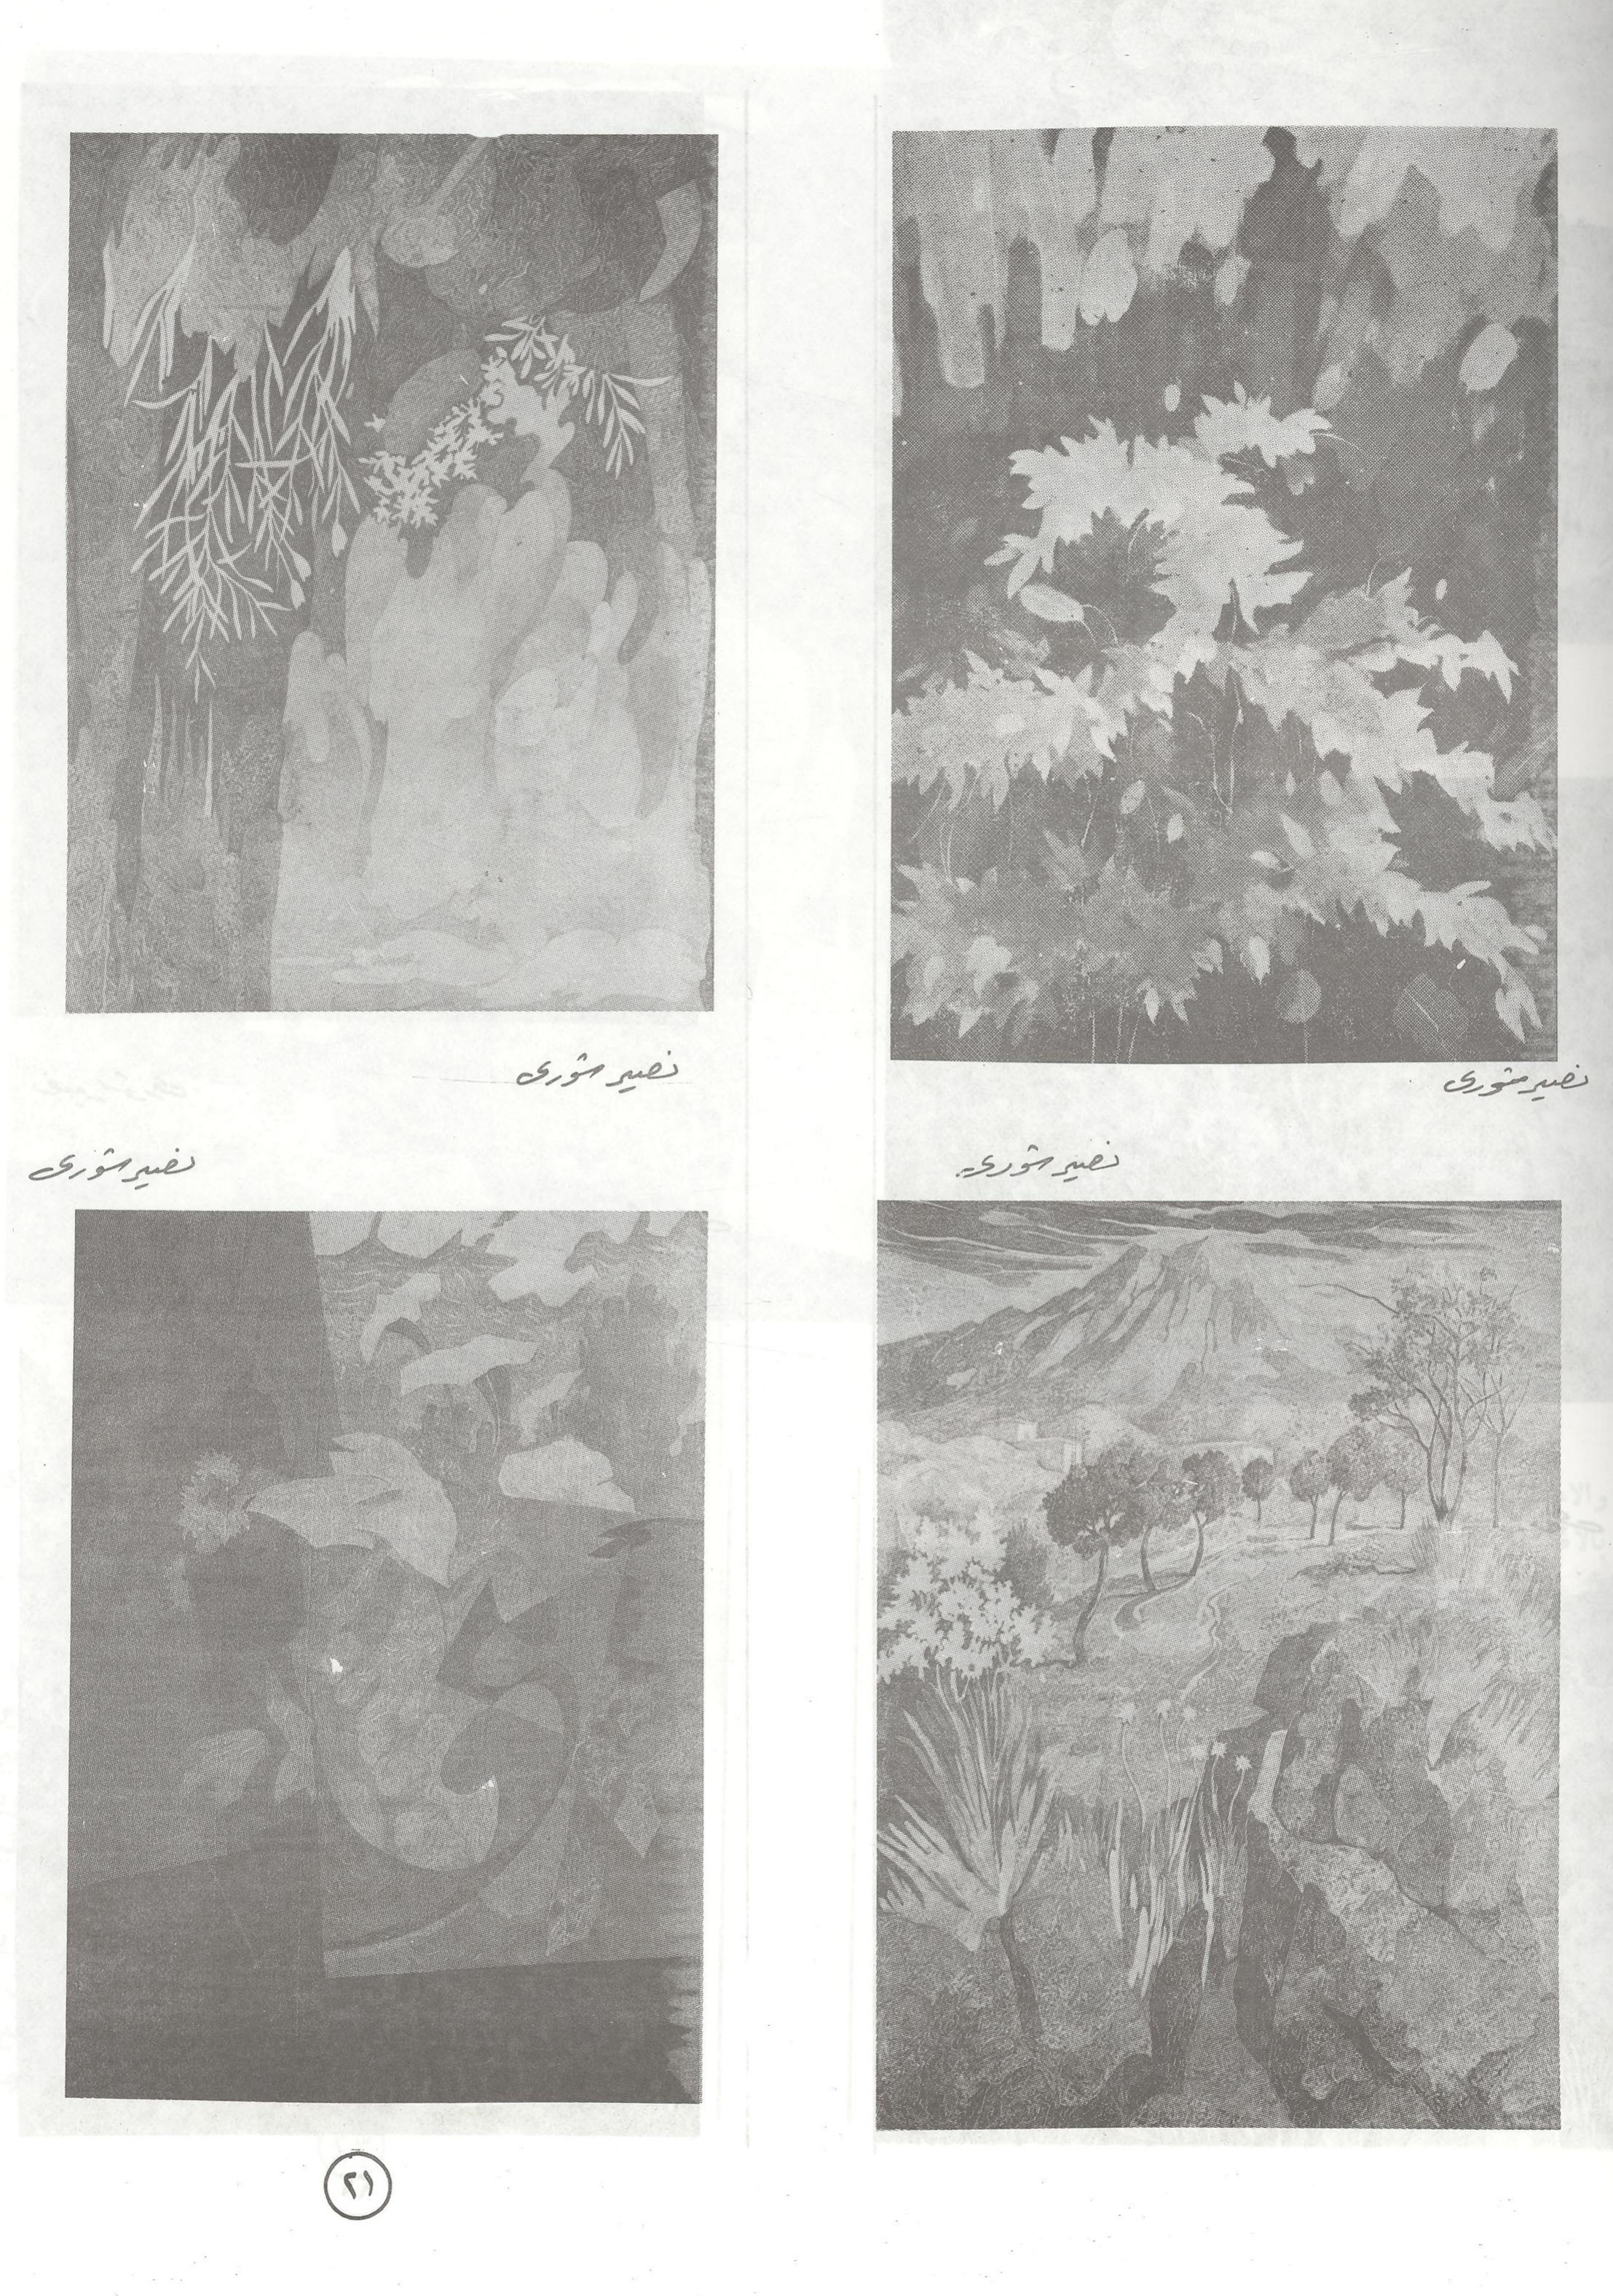 نصير شورى
نصير شورى
نصير شورى
نصير شورى
٢١